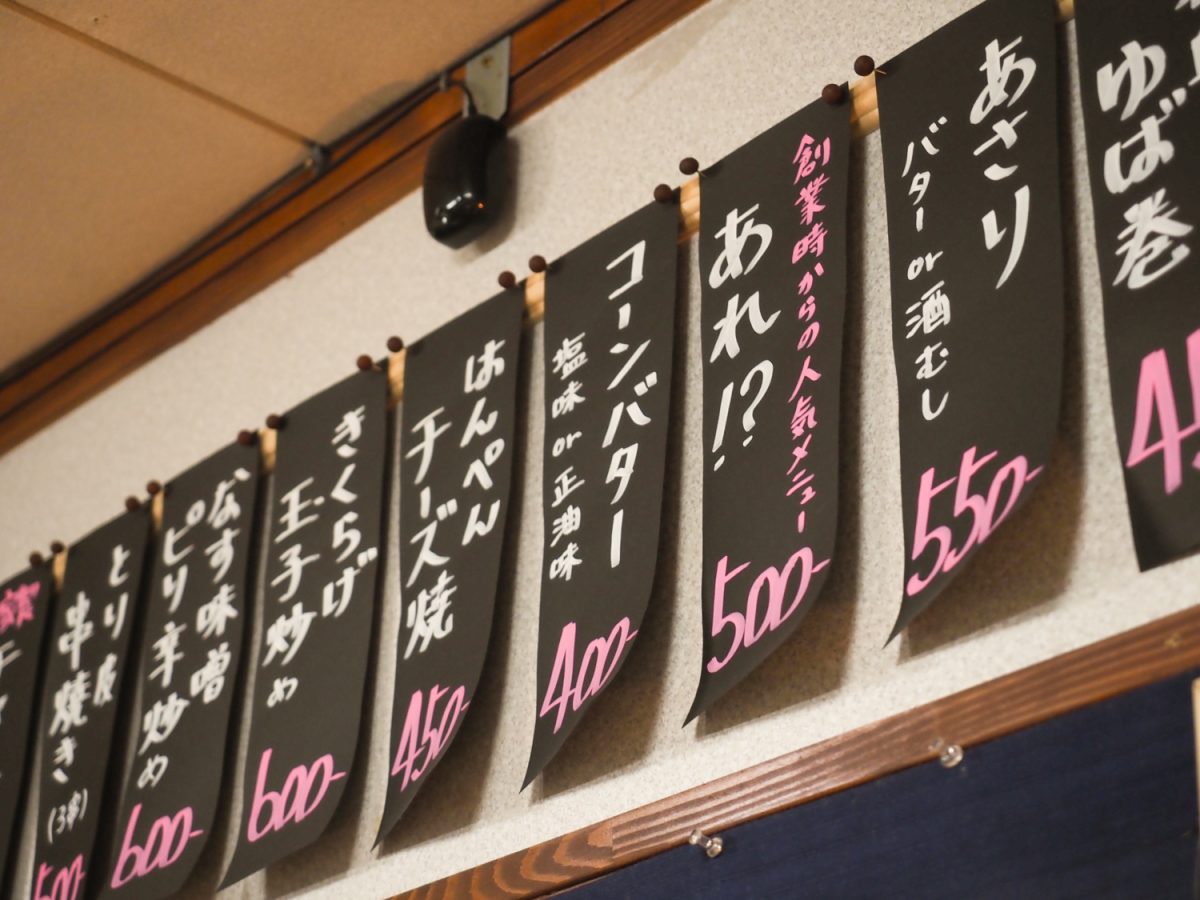 ゆば巻
あさり
バター or 酒むし
550-
創業時からの人気メニュー
あれ!?
500-
コーンバター
塩味 or 正油味
400-
はんぺん
チーズ焼
450-
きくらげ
玉子炒め
600-
なす味噌
ピリ辛炒め
600-
とり皮
串焼き(3串)
500-